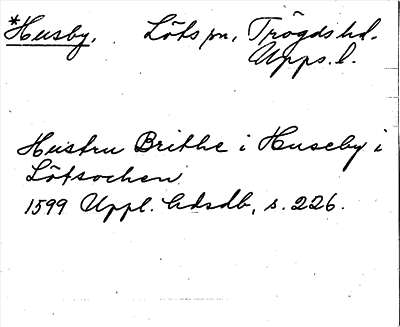 *Husby. Löts sn, Trögds hd.
Upps. l.
Hustru Brithe i Huseby i
Lötsochen
1599 Uppl. hdsdb, s. 226.